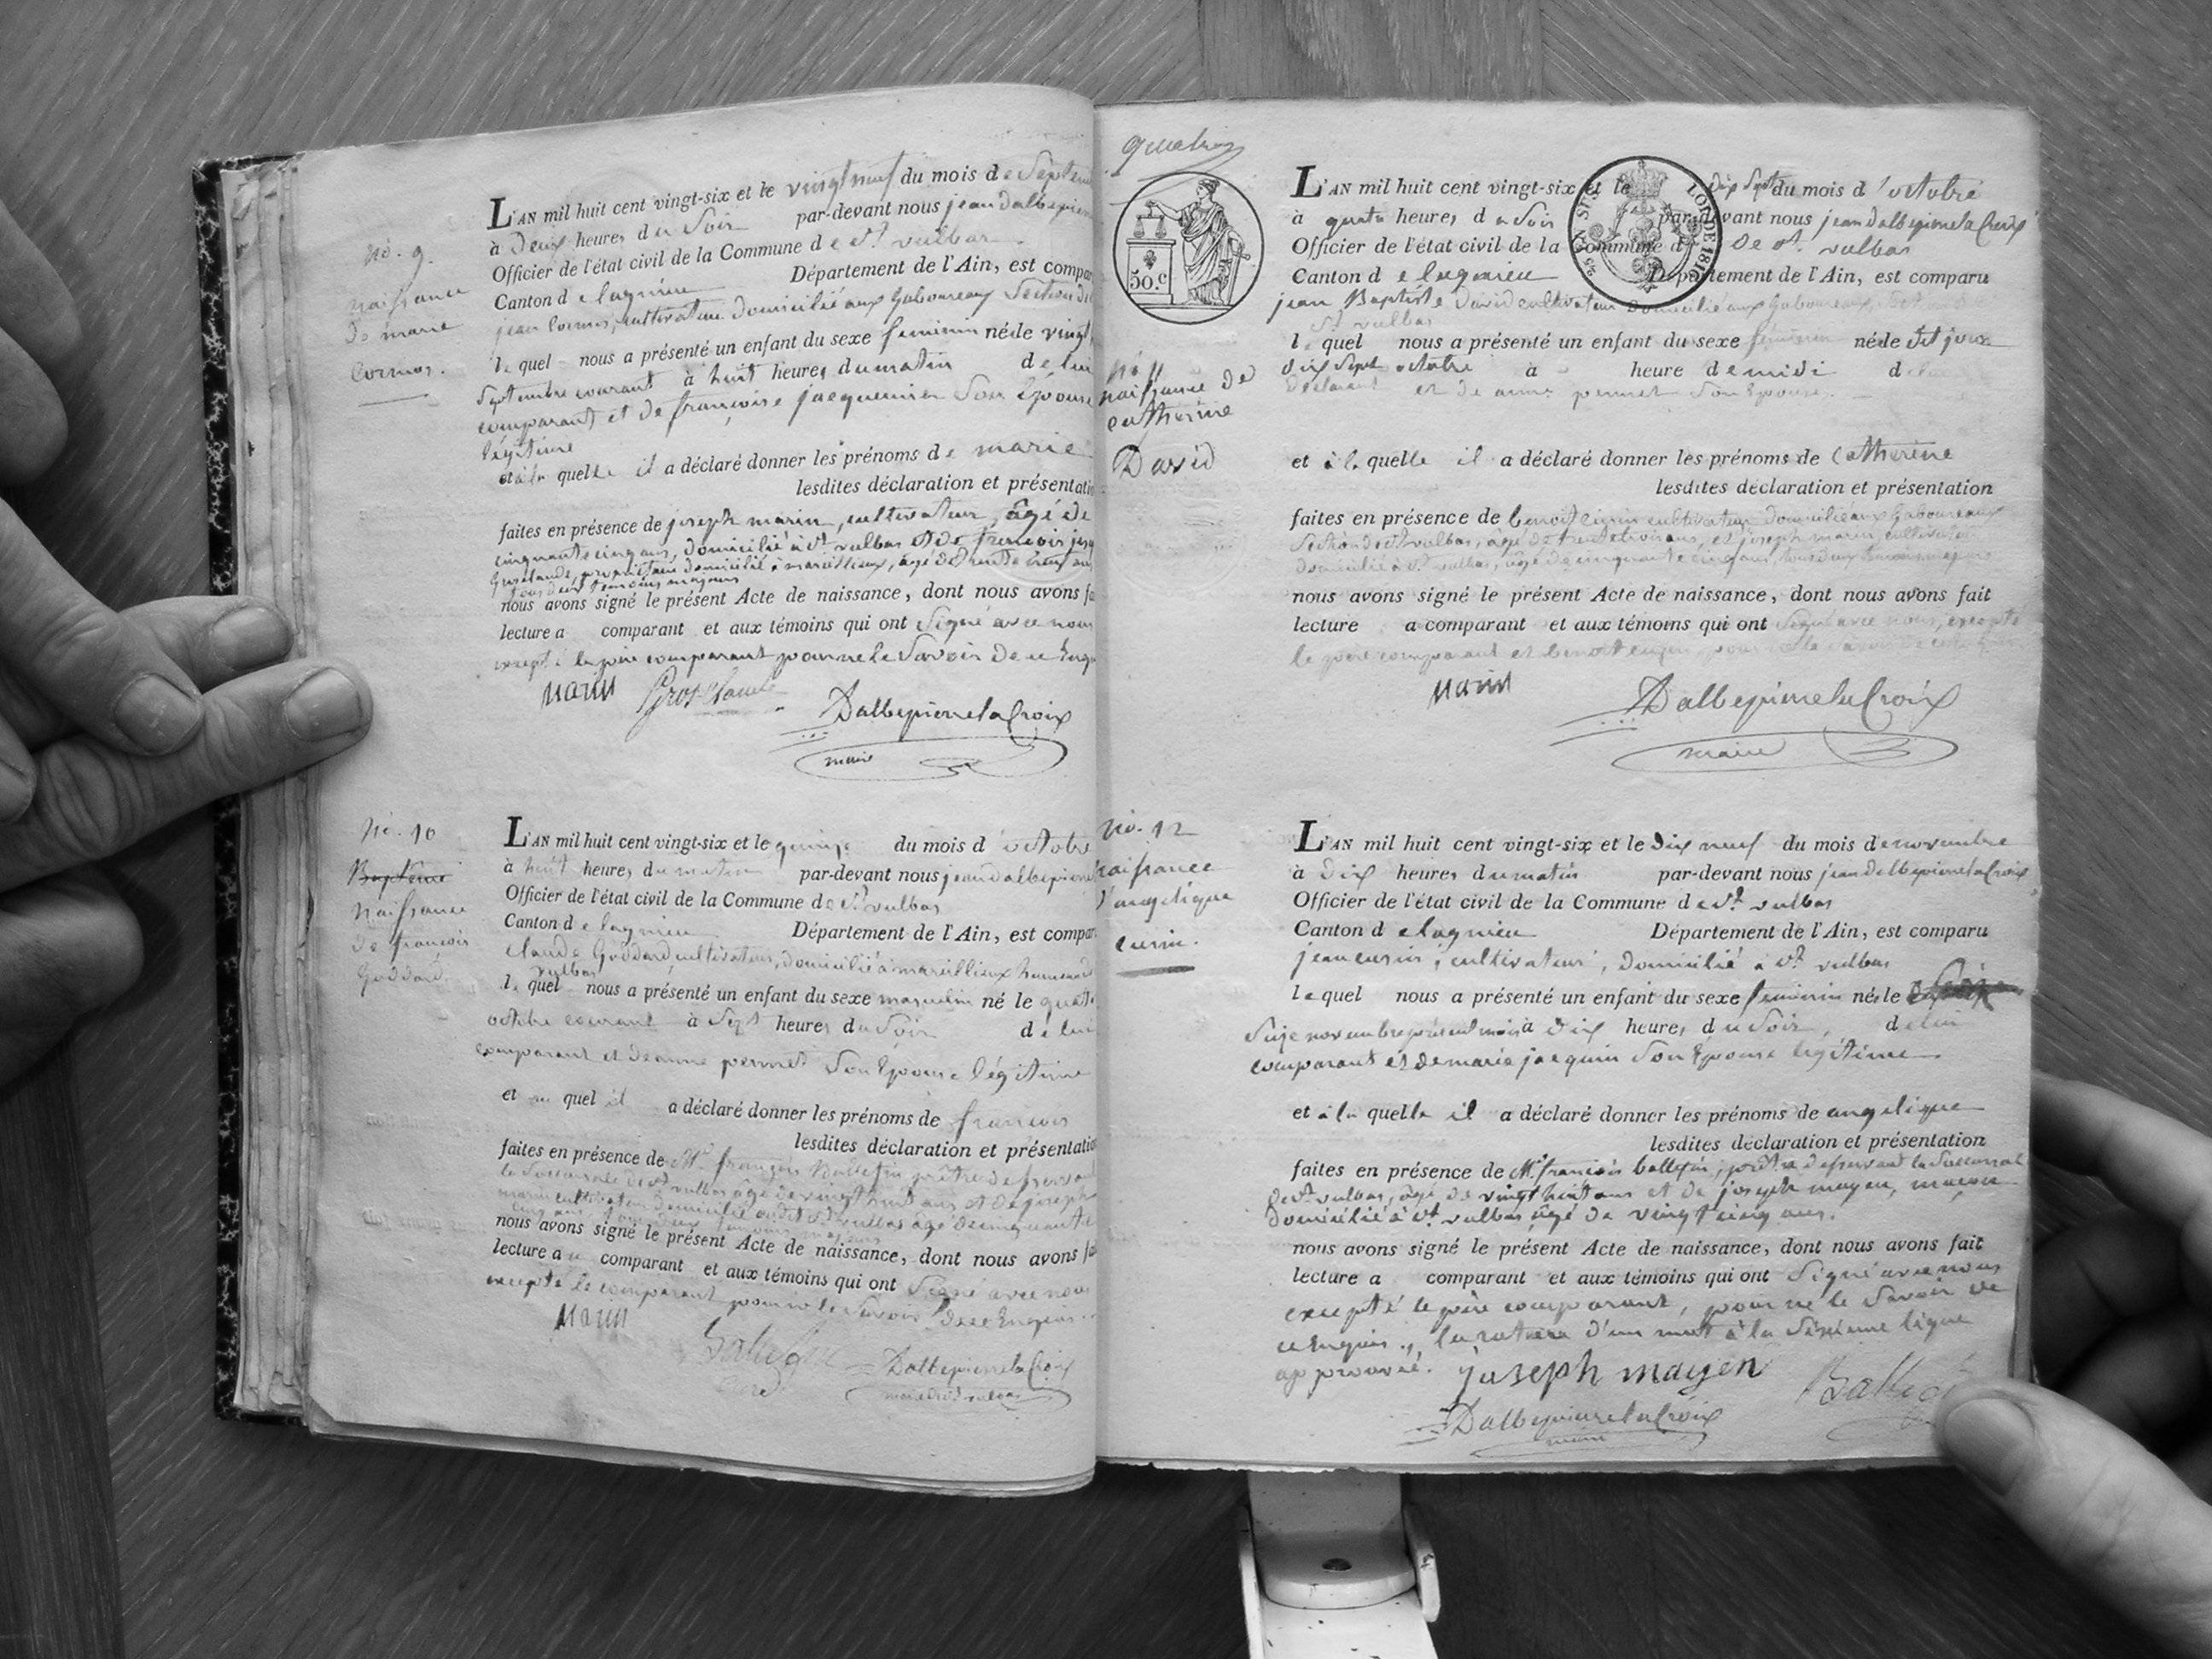 no. 9.
naissance
de marie
Cormos.
L'AN mil huit cent vingt-six et le vingt neuf du mois de Septem
à Deux heures du Soir par-devant nous jean dalbepierre
Officier de l'état civil de la Commune de St. vulbas
Canton de lagnieu Département de l'Ain, est compar
jean Cormos, cultivateur domicilié aux Gaboureaux Section de
le quel nous a présenté un enfant du sexe feminin née le vingt
Septembre courant à huit heures du matin de lui
comparant et de françoise jacquemier Son Epouse
légitime
et à la quelle il a déclaré donner les prénoms de marie
lesdites déclaration et présentatio
faites en présence de joseph marin, cultivateur, âgé de
cinquante cinq ans, domicilié à St. vulbas et de francois
proprietaire domicilié à marcillieux, âgé de trente
tous deux temoins majeurs
nous avons signé le présent Acte de naissance, dont nous avons fa
lecture a comparant et aux témoins qui ont Signé avec nous
excepté le père comparant pour ne le Savoir de ce Enqu
Marin Grosclaude DalbepierrelaCroix
maire
no. 10
Baptême
naissance
de francois
Goddard
L'AN mil huit cent vingt-six et le quinze du mois d'octobre
à huit heures du matin par-devant nous jean dalbepierre
Officier de l'état civil de la Commune de St. vulbas
Canton de lagnieu Département de l'Ain, est compar
Claude Goddard cultivateur, domicilié à marcillieux hameau
vulbas
le quel nous a présenté un enfant du sexe masculin né le quat
octobre courant à Sept heures du Soir de lui
comparant et de anne permet Son Epouse légitime
et au quel il a déclaré donner les prénoms de francois
lesdites déclaration et présentatio
faites en présence de Mr. françois Balleffin prêtre desserva
la Succursale de St. vulbas âgé de vingt huit ans et de joseph
marin cultivateur domicilié audit St. vulbas âgé de cinquante
cinq ans, tous deux temoins majeurs
nous avons signé le présent Acte de naissance, dont nous avons fa
lecture au comparant et aux témoins qui ont Signé avec nous
excepté le comparant pour ne le Savoir De ce Enquis.
Marin
DalbepierrelaCroix
curé maire de St. vulbas
50. c
no. 11
naissance de
catherine
David
L'AN mil huit cent vingt-six et le dix Sept du mois d'octobre
à quatre heures du Soir par-devant nous jean dalbepierrelaCroix
Officier de l'état civil de la Commune d De St. vulbas
Canton de lagnieu Département de l'Ain, est comparu
jean Baptiste David cultivateur Domicilié aux Gaboureaux
St. vulbas
le quel nous a présenté un enfant du sexe feminin née le dit jour
dix Sept octobre à heure de midi de lui
déclarant et de anne permet Son Epouse.
et à la quelle il a déclaré donner les prénoms de Catherine
lesdites déclaration et présentation
faites en présence de benoit cusin cultivateur domicilié aux Gaboureaux
Section de St. vulbas, âgé de trente trois ans, et joseph marin cultivateur
domicilié à St. vulbas, âgé de cinquante cinq ans, tous deux temoins majeurs
nous avons signé le présent Acte de naissance, dont nous avons fait
lecture a comparant et aux témoins qui ont Signé avec nous, excepté
le pere comparant et benoit cusin, pour ne le Savoir
Marin DalbepierrelaCroix
maire
no. 12
naissance
d'angelique
cusin.
L'AN mil huit cent vingt-six et le dix neuf du mois de novembre
à dix heures du matin par-devant nous jean dalbepierrelaCroix
Officier de l'état civil de la Commune de St. vulbas
Canton de lagnieu Département de l'Ain, est comparu
jean cusin, cultivateur, domicilié à St. vulbas
le quel nous a présenté un enfant du sexe feminin née le
Seize novembre présent mois à dix heures du Soir, de lui
comparant et de marie jacquin Son Epouse légitime.
et à la quelle il a déclaré donner les prénoms de angelique
lesdites déclaration et présentation
faites en présence de Mr. francois balleffin, prêtre desservant la Succursal
de St. vulbas, âgé de vingt huit ans et de joseph mayen, maçon
domicilié à St. vulbas âgé de vingt cinq ans.
nous avons signé le présent Acte de naissance, dont nous avons fait
lecture a comparant et aux témoins qui ont Signé avec nous
excepté le père comparant, pour ne le Savoir de
ce Enquis., la rature d'un mot à la Sixieme ligne
approuvée. joseph mayen
DalbepierrelaCroix
maire